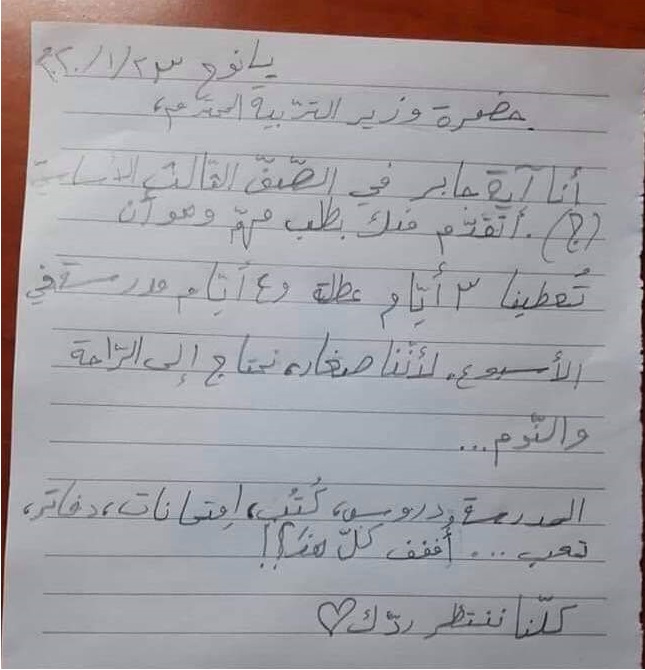 يانوح ٢٣/١/٢٠٢٠
حضرة وزير التربية المحترم،
أنا آية جابر في الصّفّ الثالث الأساسيّ
(ج). أتقدّم منك بطلب مهمّ وهو أن
تُعطينا ٣ أيّام عطلة و٤ أيّام مدرسة في
الأسبوع. لأنّنا صغار، نحتاج إلى الرّاحة
والنّوم...
المدرسة، دروس، كُتُب، امتحانات، دفاتر،
تعب ... أففف كلّ هذا؟!!
كلّنا ننتظر ردّك ♡